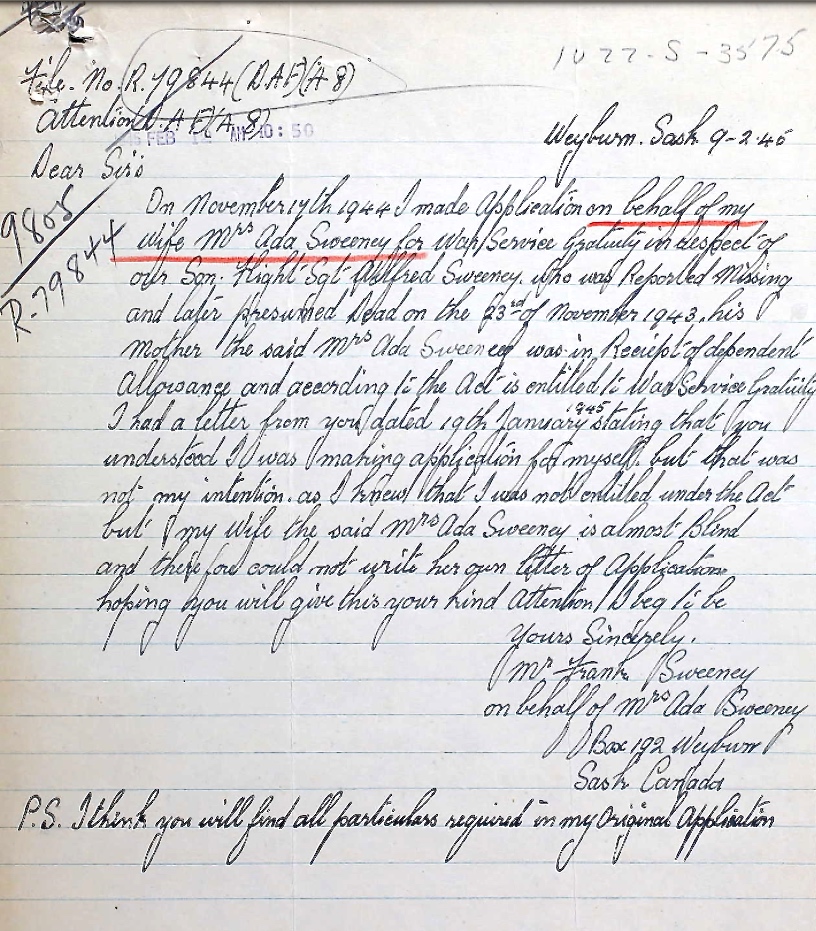 1022-S-3575
File. No. R.79844 (D.A.F)(A 8)
Attention D.A.F(A 8)
FEB 12 AM 10:50
Weyburn. Sask 9-2-45
Dear Sirs
9805
R-79844
On November 17th 1944 I made Application on behalf of my
Wife Mrs Ada Sweeney for War Service Gratuity in respect of
our Son. Flight Sgt Wilfred Sweeney. who was Reported Missing
and later presumed Dead on the 23rd of November 1943, his
Mother the said Mrs Ada Sweeney was in Reciept of dependent
Allowance and according to the Act is entitled to War Service Gratuity
I had a letter from you dated 19th January 1945 stating that you
understood I was making application for myself. but that was
not my intention. as I knew that I was not entitled under the Act
but my Wife the said Mrs Ada Sweeney is almost Blind
and therefore could not write her own letter of Application
hoping you will give this your kind Attention I beg to be
Yours Sincerely.
Mr Frank Sweeney
on behalf of Mrs Ada Sweeney
Box 192 Weyburn
Sask Canada
P.S. I think you will find all particulars required in my Original Application